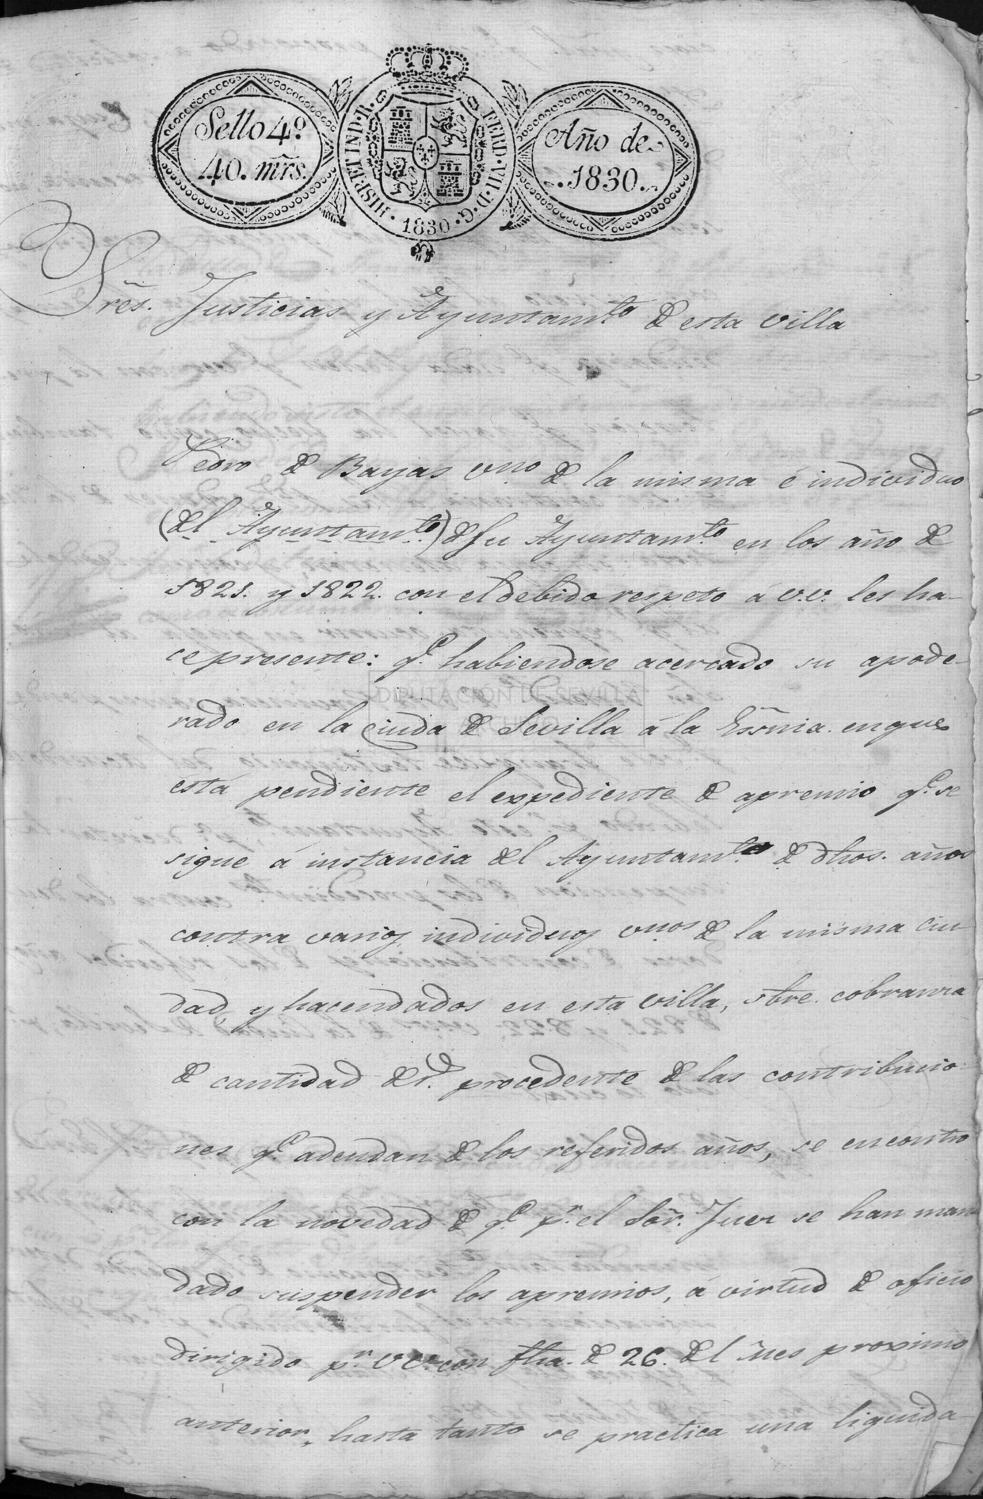 Sello 4º
40. mrs.
HISP. ET IND. R. FERD. VII. D. G.
1830
Año de
1830.
Sres. Justicias y Ayuntamto de esta villa
Pedro de Bayas vno de la misma é individuo
(del Ayuntamto) de su Ayuntamto en los año de
1821. y 1822. con el debido respeto á v.v. les ha-
ce presente: qe habiendose acercado su apode-
rado en la ciuda de Sevilla á la Essnia. en que
está pendiente el expediente de apremio qe se
sigue á instancia del Ayuntamto de dhos. años
contra varios individuos vnos de la misma Ciu-
dad, y hacendados en esta villa, sbre. cobranza
de cantidad de rs. procedente de las contribucio-
nes qe adeudan de los referidos años, se encontro
con la novedad de qe pr. el Sor. Juez se han man-
dado suspender los apremios, á virtud de oficio
dirigido pr. V.V. con fha. de 26. del mes proximo
anterior, hasta tanto se practica una liquida-
DIPUTACIÓN DE SEVILLA
ARCHIVO